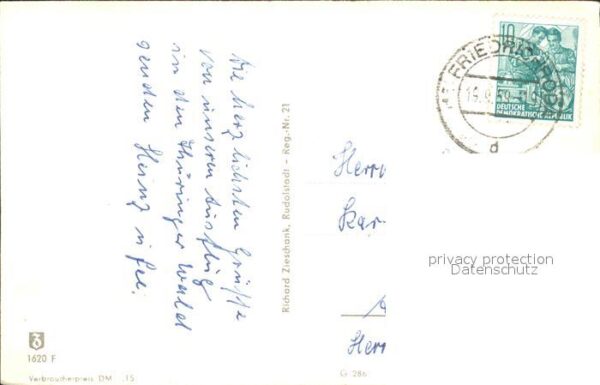 Die herzlichsten Grüße
von unserem Ausflug
in den Thüringer Wald
senden Heinz u.
Richard Zieschank, Rudolstadt - Reg.-Nr. 21
1620 F
Verbraucherpreis DM -.15
10
DEUTSCHE
DEMOKRATISCHE REPUBLIK
FRIEDRICHRODA
d
Herrn
Kar
Herr
G 286
privacy protection
Datenschutz